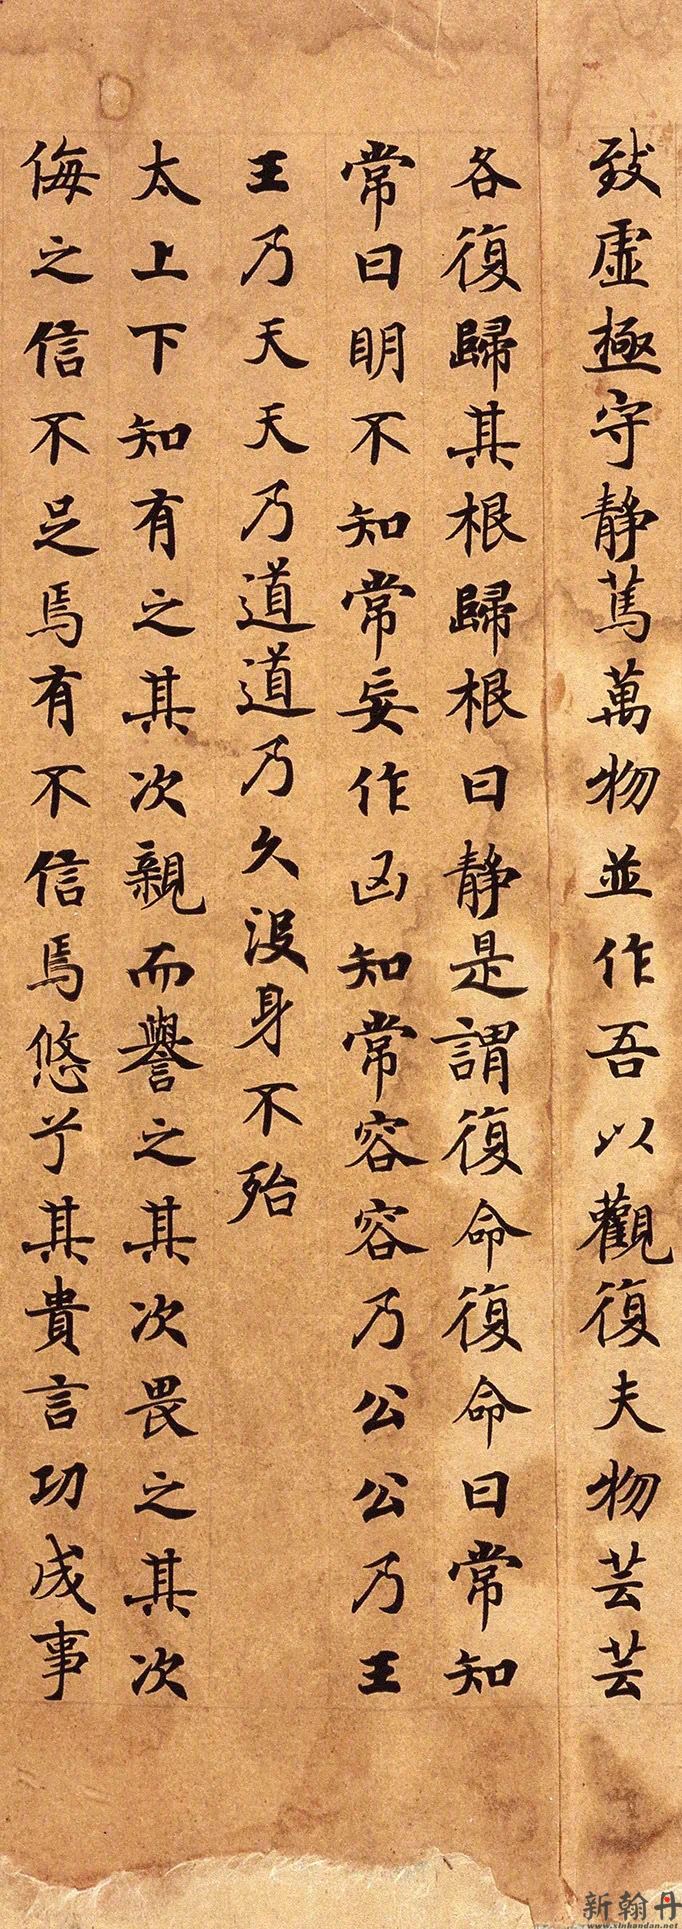 致虛極守靜篤萬物並作吾以觀復夫物芸芸
各復歸其根歸根曰靜是謂復命復命曰常知
常曰明不知常妄作凶知常容容乃公公乃王
王乃天天乃道道乃久沒身不殆
太上下知有之其次親而譽之其次畏之其次
侮之信不足焉有不信焉悠兮其貴言功成事
新翰丹
www.xinhandan.net